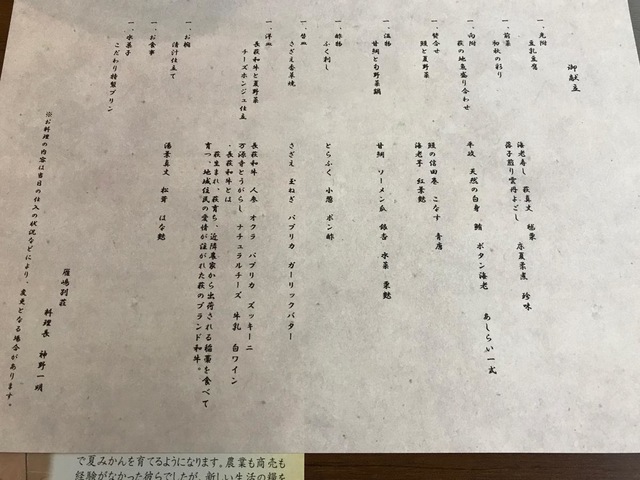 御献立
一、先附
豆乳豆腐
一、前菜
初秋の彩り
海老寿し 萩真丈 毬栗 珍味
落子煎り雲丹よごし 床夏煮
一、向附
萩の地魚盛り合わせ
平政 天然の白身 鮪 ボタン海老 あしらい一式
一、焚合せ
鰻と夏野菜
鰻の信田巻 こなす 青唐
海老芋 紅葉麩
一、温物
甘鯛と旬野菜鍋
甘鯛 ソーメン瓜 銀杏 水菜 粟麩
一、酢物
ふく刺し
とらふく 小葱 ポン酢
一、替皿
さざえ香草焼
さざえ 玉ねぎ パプリカ ガーリックバター
一、洋皿
長萩和牛と夏野菜
チーズホンジュ仕立
長萩和牛 人参 オクラ パプリカ ズッキーニ
万源寺とうがらし ナチュラルチーズ 牛乳 白ワイン
・長萩和牛とは
萩生まれ、萩育ち、近隣農家から出荷される稲藁を食べて
育つ、地域住民の愛情が注がれた萩のブランド和牛。
一、お椀
清汁仕立て
湯葉真丈 松茸 はな麩
一、お食事
一、水菓子
こだわり特製プリン
※お料理の内容は当日の仕入の状況などにより、変更となる場合があります。
雁嶋別荘
料理長 神野一明
で夏みかんを育てるようになります。農業も商売も
経験がなかった彼らでしたが、新しい生活の糧を